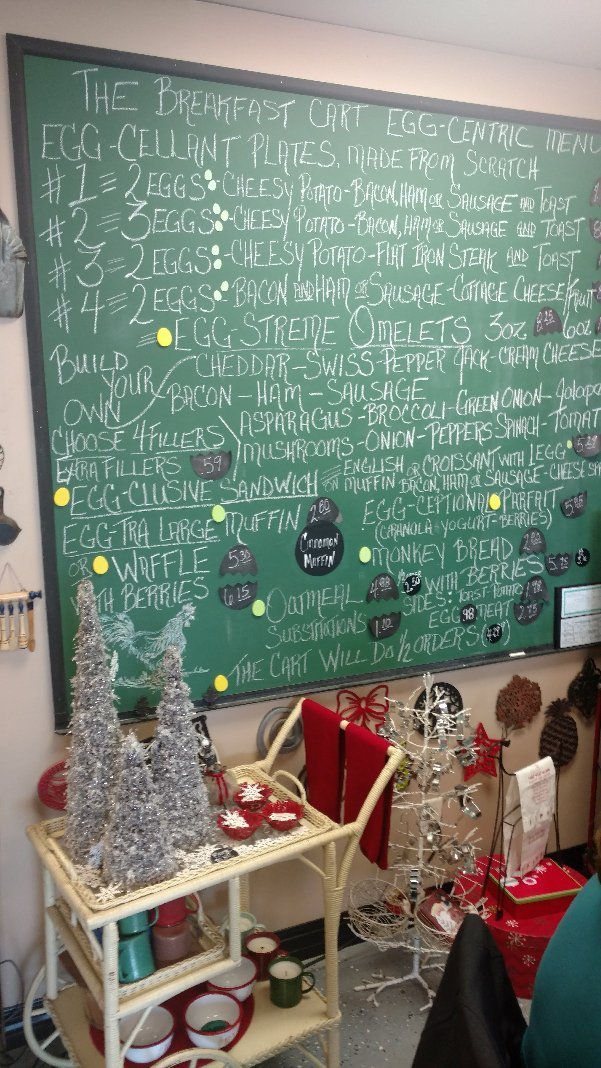 THE BREAKFAST CART EGG-CENTRIC MENU
EGG-CELLANT PLATES, MADE FROM SCRATCH
#1 = 2 EGGS: CHEESY POTATO-BACON, HAM OR SAUSAGE AND TOAST
#2 = 3 EGGS: CHEESY POTATO-BACON, HAM OR SAUSAGE AND TOAST
#3 = 2 EGGS: -CHEESY POTATO-FLAT IRON STEAK AND TOAST
#4 = 2 EGGS: BACON AND HAM OR SAUSAGE-COTTAGE CHEESE/FRUIT
EGG-STREME OMELETS 3oz 8.25 6oz
BUILD YOUR OWN
CHEDDAR-SWISS-PEPPER JACK-CREAM CHEESE
BACON-HAM-SAUSAGE
ASPARAGUS-BROCCOLI-GREEN ONION-Jalapa
CHOOSE 4 FILLERS
MUSHROOMS-ONION-PEPPERS SPINACH-TOMAT
EXTRA FILLERS .59
EGG-CLUSIVE SANDWICH ENGLISH MUFFIN OR CROISSANT WITH 1 EGG 5.29
BACON, HAM, OR SAUSAGE-CHEESE
EGGTRA LARGE MUFFIN 2.80
Cinnamon
Muffin
EGG-CEPTIONAL PARFAIT
(GRANOLA-YOGURT-BERRIES)
OR WAFFLE 5.30
WITH BERRIES 6.15
MONKEY BREAD
WITH BERRIES
OATMEAL 4.98
SIDES: TOAST POTATO
EGG .98 MEAT 2.75
SUBSTITUTIONS
THE CART WILL DO ½ ORDERS